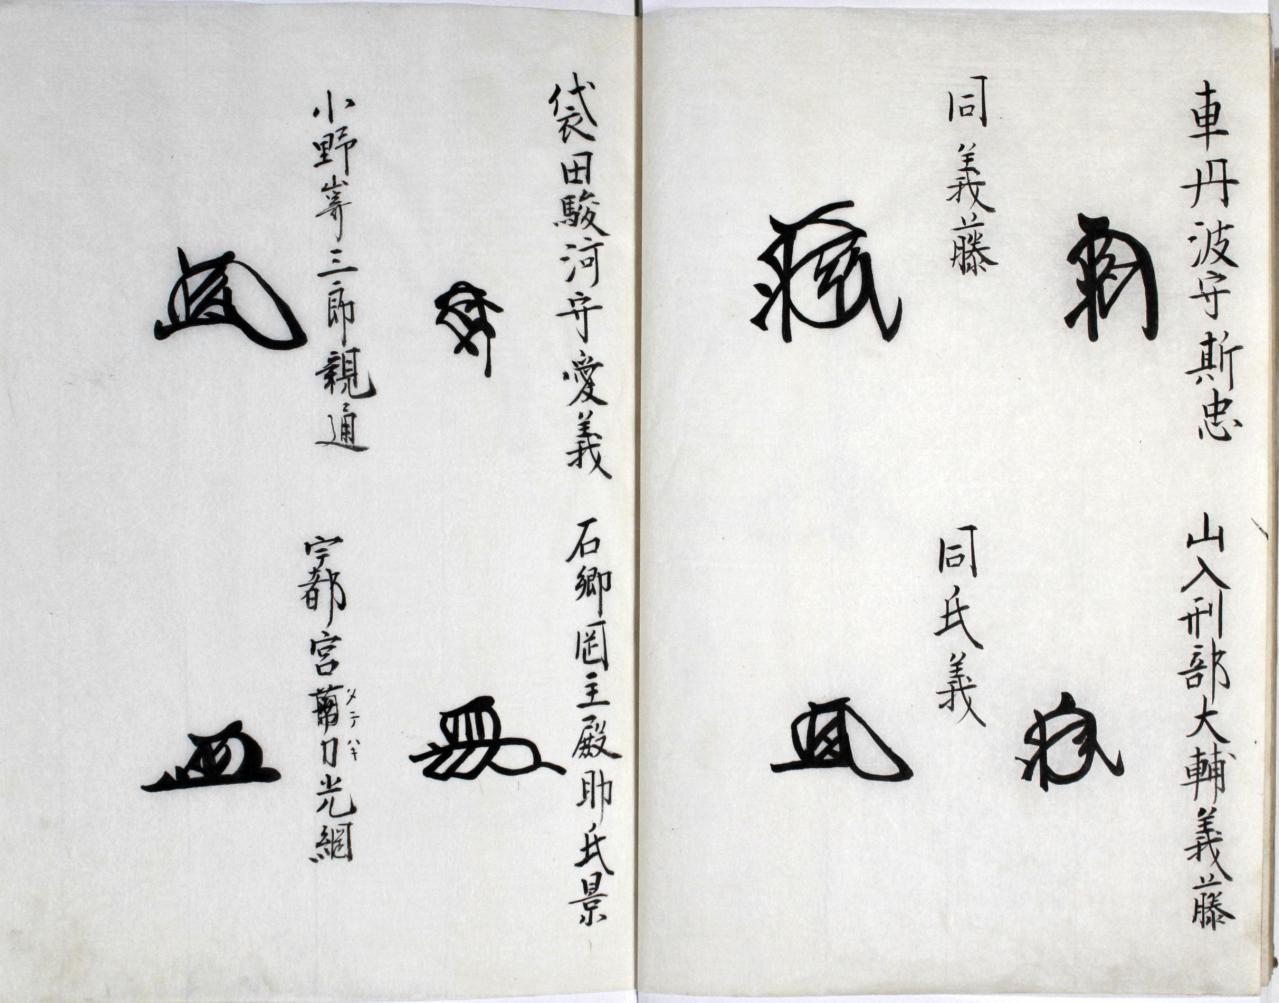 車丹波守斯忠
山入刑部大輔義藤
同義藤
同氏義
袋田駿河守愛義
石郷罡主殿助氏景
小野嵜三郎親通
宇都宮
刀光綱